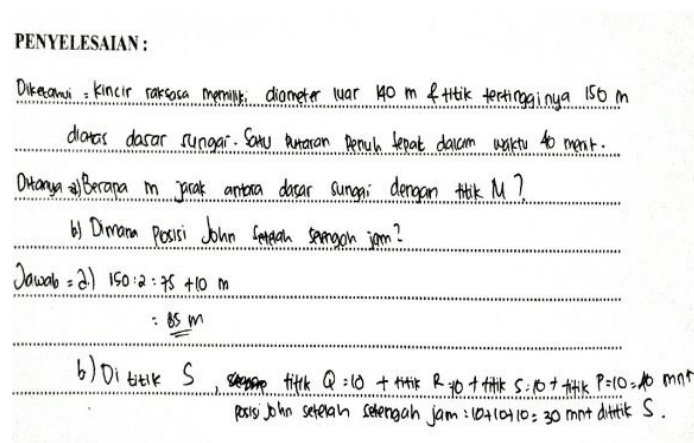 PENYELESAIAN :
Diketahui : kincir raksasa memiliki diameter luar 140 m & titik tertingginya 150 m
diatas dasar sungai. Satu putaran penuh tepat dalam waktu 40 menit.
Ditanya a) Berapa m jarak antara dasar sungai dengan titik M?
b) Dimana posisi John setelah setengah jam?
Jawab = a.) 150 : 2 : 75 + 10 m
: 85 m
b) Di titik S, titik Q = 10 + titik R = 10 + titik S : 10 + titik P = 10 = 40 mnt
posisi John setelah setengah jam : 10+10+10 = 30 mnt dititik S.